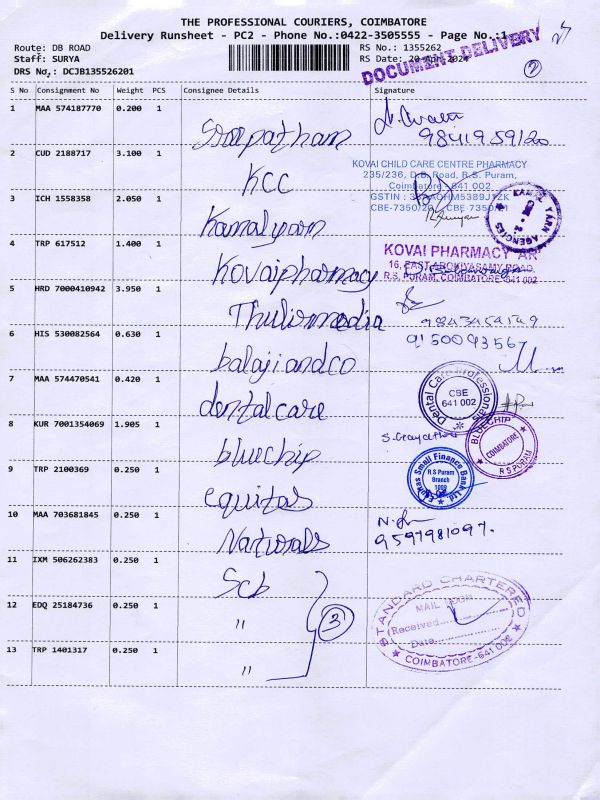 THE PROFESSIONAL COURIERS, COIMBATORE
Delivery Runsheet - PC2 - Phone No.:0422-3505555 - Page No.:1
Route: DB ROAD
Staff: SURYA
DRS No.: DCJB135526201
RS No.: 1355262
RS Date: 20 Apr 2024
DOCUMENT DELIVERY
2
S No Consignment No Weight PCS Consignee Details Signature
1 MAA 574187770 0.200 1
9841959120
2 CUD 2188717 3.100 1 KCC
KOVAI CHILD CARE CENTRE PHARMACY
235/236, D.B. Road, R.S. Puram,
Coimbatore - 641 002
CBE-7350/20
3 ICH 1558358 2.050 1 Kamalyarn
KAMAL YARN AGENCIES
4 TRP 617512 1.400 1 Kovaipharmacy
KOVAI PHARMACY
R.S. PURAM, COIMBATORE-641 002
5 HRD 7000410942 3.950 1 Thulirmedia
6 HIS 530082564 0.630 1 balajiandco
7 MAA 574470541 0.420 1 dentalcare
Dental Care Professionals
CBE
641 002
8 KUR 7001354069 1.905 1 bluechip
BLUECHIP
COIMBATORE
R S PURAM
9 TRP 2100369 0.250 1 equitas
Small Finance Bank Ltd
R S Puram
Branch
10 MAA 703681845 0.250 1 Naturals
9597981097.
11 IXM 506262383 0.250 1 Scb
12 EDQ 25184736 0.250 1 "
3
13 TRP 1401317 0.250 1 "
STANDARD CHARTERED
MAIL ROOM
(Received
Date
COIMBATORE-641 002